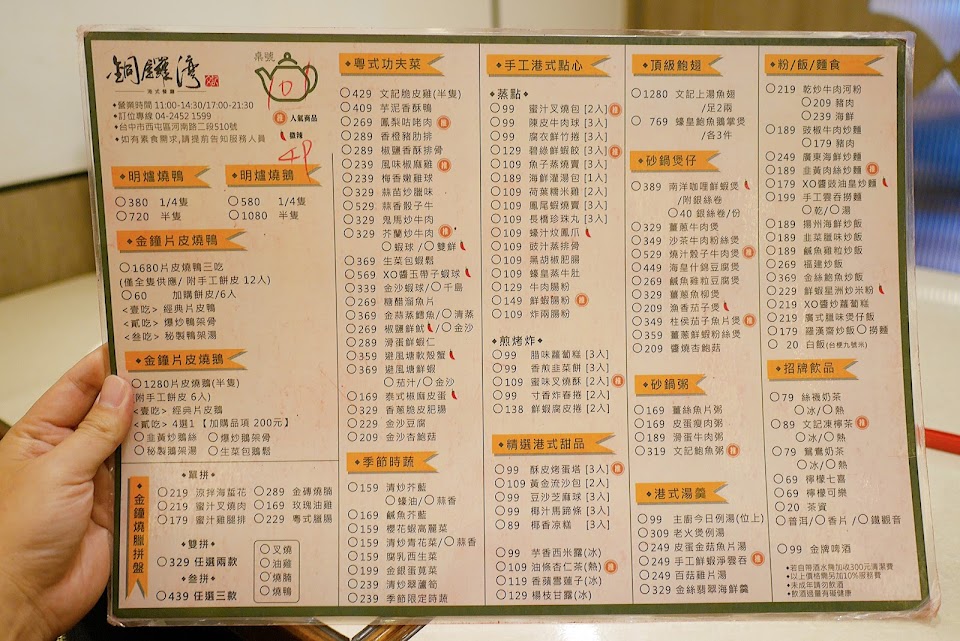 銅鑼灣
港式餐廳
桌號
101
4P
◆營業時間 11:00-14:30/17:00-21:30
◆訂位專線 04-2452 1599
◆台中市西屯區河南路二段510號
◆如有素食需求,請提前告知服務人員
人氣商品
微辣
明爐燒鴨
380 1/4隻
720 半隻
明爐燒鵝
580 1/4隻
1080 半隻
金鐘片皮燒鴨
1680片皮燒鴨三吃
(僅全隻供應/ 附手工餅皮 12人)
60 加購餅皮/6人
<壹吃> 經典片皮鴨
<貳吃> 爆炒鴨架骨
<叁吃> 秘製鴨架湯
金鐘片皮燒鵝
1280片皮燒鵝(半隻)
附手工餅皮 6人)
<壹吃> 經典片皮鵝
<貳吃> 4選1【加購品項 200元】
韭黃炒鵝絲 爆炒鵝架骨
秘製鵝架湯 生菜包鵝鬆
金鐘燒臘拼盤
單拼
219 涼拌海蜇花 289 金磚燒腩
219 蜜汁叉燒肉 169 玫瑰油雞
179 蜜汁雞腿排 229 粵式臘腸
雙拼
329 任選兩款
叁拼
439 任選三款
叉燒
油雞
燒腩
燒鴨
粵式功夫菜
429 文記脆皮雞(半隻)
409 芋泥香酥鴨
269 鳳梨咕咾肉
289 香橙豬肋排
289 椒鹽香酥排骨
239 風味椒麻雞
239 梅香嫩雞球
329 蒜苗炒臘味
529 蒜香骰子牛
329 鬼馬炒牛肉
329 芥蘭炒牛肉
蝦球/雙鮮
369 生菜包蝦鬆
569 XO醬玉帶子蝦球
339 金沙蝦球/千島
269 糖醋溜魚片
369 金蒜蒸鱈魚/清蒸
269 椒鹽鮮魷/金沙
289 滑蛋蝦仁
359 避風塘軟殼蟹
369 避風塘鮮蝦
茄汁/金沙
169 泰式椒麻皮蛋
329 香蔥脆皮肥腸
229 金沙豆腐
209 金沙杏鮑菇
季節時蔬
159 清炒芥藍
蠔油/蒜香
169 鹹魚芥藍
159 櫻花蝦高麗菜
159 清炒青花菜/蒜香
159 腐乳西生菜
199 金銀蛋莧菜
239 清炒翠蘆筍
239 季節限定時蔬
手工港式點心
蒸點
99 蜜汁叉燒包 [2入]
99 陳皮牛肉球 [3入]
99 腐衣鮮竹捲 [3入]
129 碧綠鮮蝦餃 [3入]
109 魚子蒸燒賣 [3入]
189 海鮮灌湯包 [1入]
109 荷葉糯米雞 [2入]
109 鳳尾蝦燒賣 [3入]
109 長橋珍珠丸 [3入]
109 蠔汁炆鳳爪
109 豉汁蒸排骨
109 黑胡椒肥腸
109 蠔皇蒸牛肚
129 牛肉腸粉
149 鮮蝦腸粉
109 炸兩腸粉
煎烤炸
99 腊味蘿蔔糕 [3入]
99 香煎韭菜餅 [3入]
109 蜜味叉燒酥 [2入]
99 寸香炸春捲 [2入]
138 鮮蝦腐皮捲 [2入]
精選港式甜品
99 酥皮烤蛋塔 [3入]
109 黃金流沙包 [2入]
99 豆沙芝麻球 [3入]
99 椰汁馬蹄條 [3入]
89 椰香凉糕 [3入]
99 芋香西米露(冰)
109 油條杏仁茶(熱)
119 香蘋雪蓮子(冰)
129 楊枝甘露(冰)
頂級鮑翅
1280 文記上湯魚翅
/足2兩
769 蠔皇鮑魚鵝掌煲
/各3件
砂鍋煲仔
389 南洋咖哩鮮蝦煲
/附銀絲卷
40 銀絲卷/份
329 薑蔥牛肉煲
349 沙茶牛肉粉絲煲
529 燒汁骰子牛肉煲
449 海皇什錦豆腐煲
269 鹹魚雞粒豆腐煲
329 薑蔥魚柳煲
209 漁香茄子煲
349 柱侯茄子魚片煲
359 薑蔥鮮蝦粉絲煲
209 醬燒杏鮑菇
砂鍋粥
169 薑絲魚片粥
169 皮蛋瘦肉粥
189 滑蛋牛肉粥
319 文記鮑魚粥
港式湯羹
99 主廚今日例湯(位上)
309 老火煲例湯
249 皮蛋金菇魚片湯
249 手工鮮蝦淨雲吞
249 百菇雞片湯
329 金絲翡翠海鮮羹
粉/飯/麵食
219 乾炒牛肉河粉
209 豬肉
239 海鮮
189 豉椒牛肉炒麵
179 豬肉
249 廣東海鮮炒麵
189 韭黃肉絲炒麵
179 XO醬豉油皇炒麵
199 手工雲吞撈麵
乾/湯
189 揚州海鮮炒飯
189 韭菜臘味炒飯
189 鹹魚雞粒炒飯
269 福建炒飯
369 金絲鮑魚炒飯
229 鮮蝦星洲炒米粉
219 XO醬炒蘿蔔糕
219 廣式臘味煲仔飯
179 羅漢齋炒飯/撈麵
20 白飯(台梗九號米)
招牌飲品
79 絲襪奶茶
冰/熱
89 文記凍檸茶
冰/熱
79 鴛鴦奶茶
冰/熱
69 檸檬七喜
69 檸檬可樂
20 茶資
普洱/香片/鐵觀音
99 金牌啤酒
◆若自帶酒水陣加收300元清潔費
◆以上價格需另加10%服務費
◆未成年請勿飲酒
◆飲酒過量有礙健康